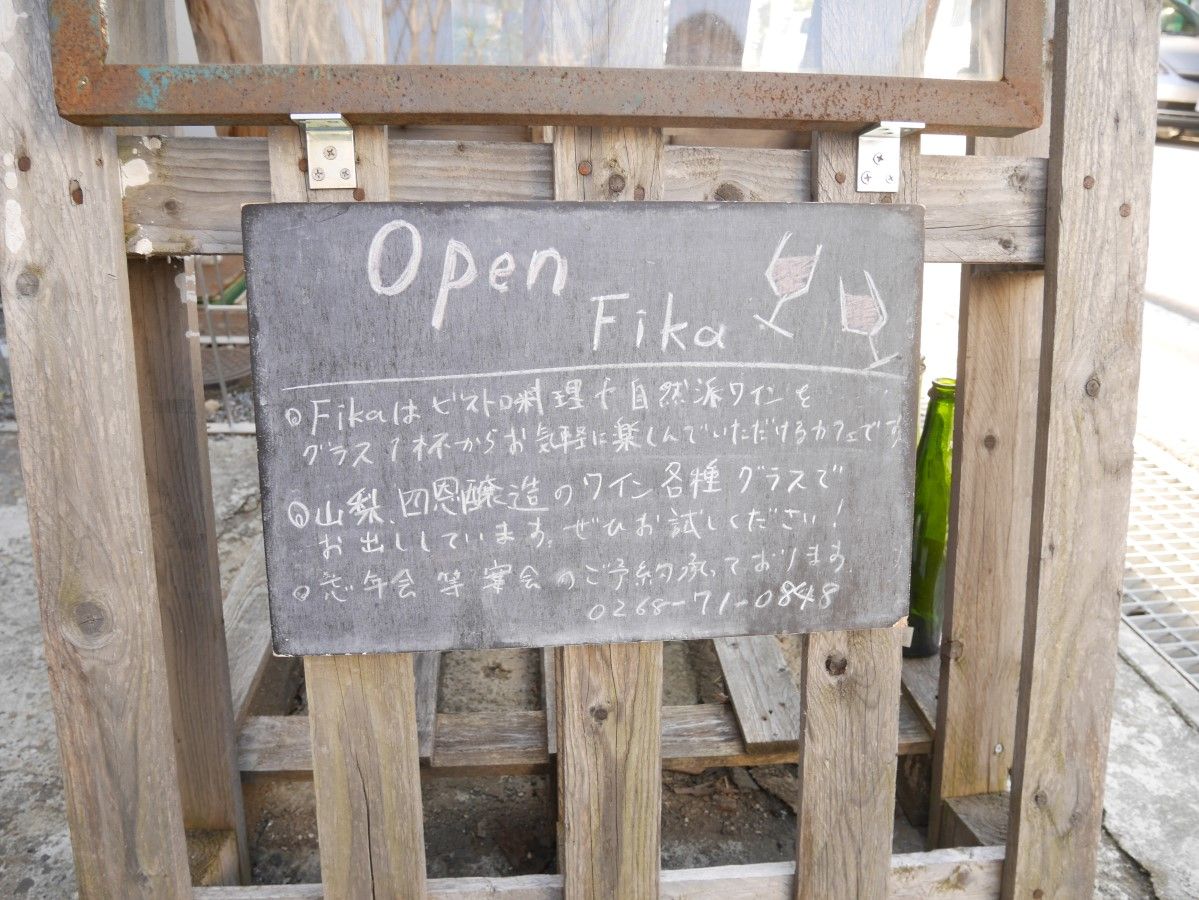 Open
Fika
◎Fikaは ビストロ料理+自然派ワインを
グラス1杯からお気軽に楽しんでいただけるカフェです
◎山梨、四恩醸造のワイン各種 グラスで
お出ししています。ぜひお試しください!
◎忘年会 等宴会のご予約承っております。
0268-71-0848